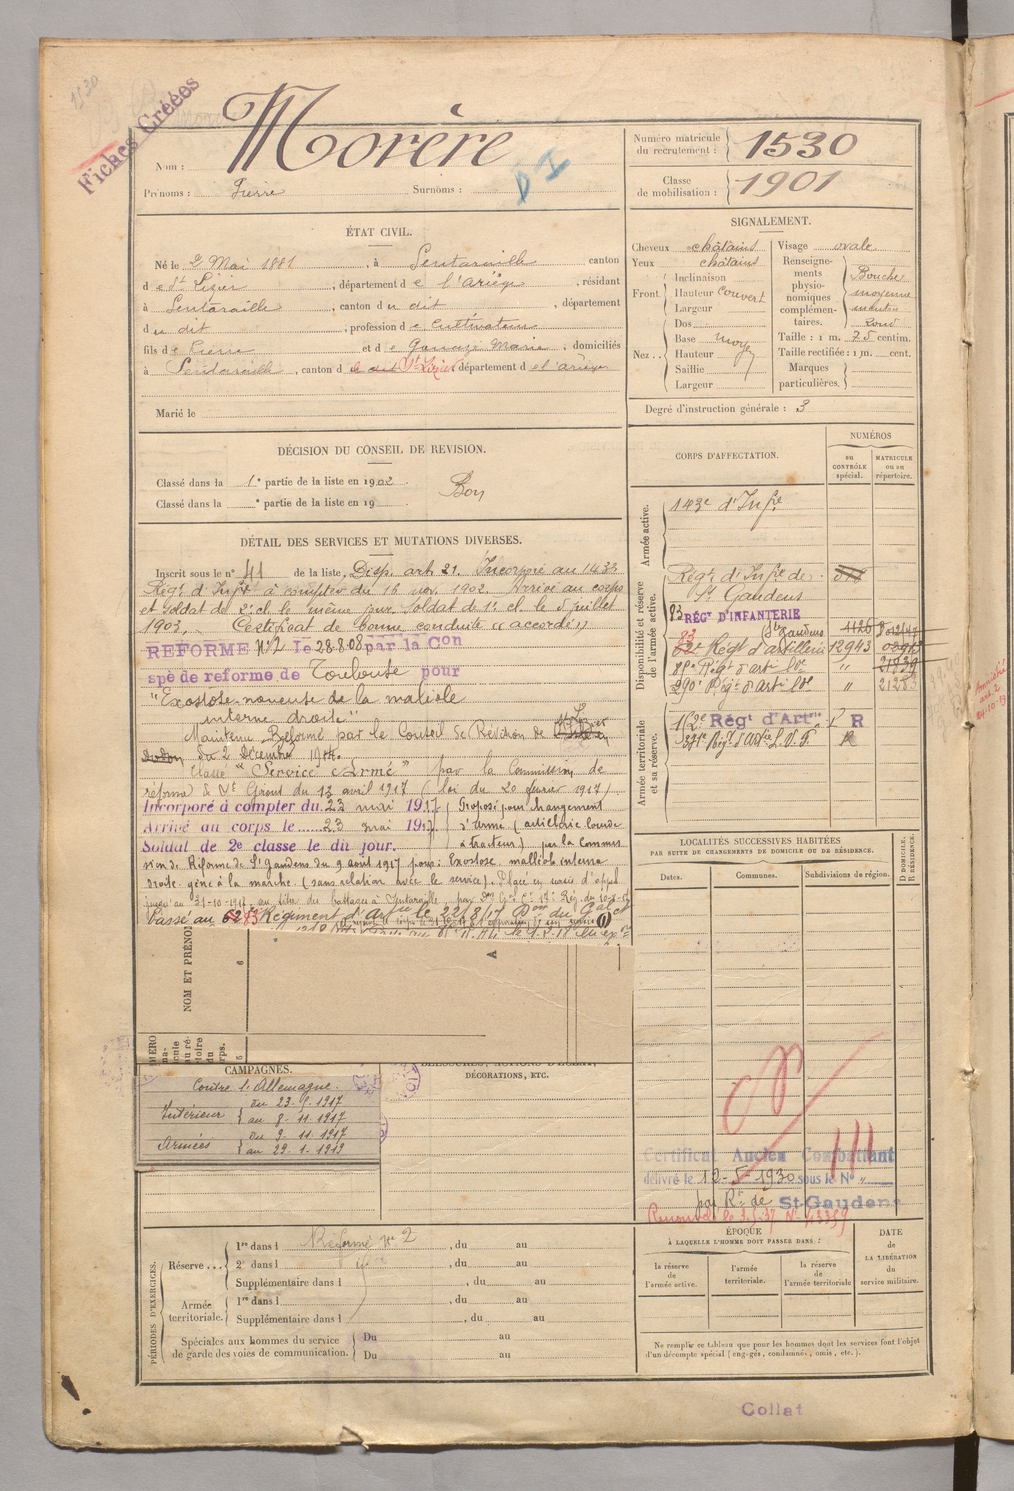 1530
Fiches Créées
Morère
Nom :
Prénoms : Pierre Surnoms :
D I
Numéro matricule du recrutement : 1530
Classe de mobilisation : 1901
ÉTAT CIVIL.
Né le 2 Mai 1881, à Lentaraille canton
de St Lizier, département de l'Ariège, résidant
à Lentaraille, canton du dit, département
du dit, profession de Cultivateur
fils de Pierre et de Marie, domiciliés
à Lentaraille, canton de St Lizier département de l'Ariège
Marié le
SIGNALEMENT.
Cheveux châtains
Yeux châtains
Front
Inclinaison
Hauteur couvert
Largeur
Nez
Dos
Base moyen
Hauteur
Saillie
Largeur
Visage ovale
Renseignements physionomiques complémentaires.
Bouche moyenne menton rond
Taille : 1 m. 75 centim.
Taille rectifiée : 1 m. cent.
Marques particulières.
Degré d'instruction générale : 3
DÉCISION DU CONSEIL DE REVISION.
Classé dans la 1e partie de la liste en 1902
Bon
Classé dans la e partie de la liste en 19
CORPS D'AFFECTATION.
NUMÉROS
au CONTRÔLE spécial.
MATRICULE ou au répertoire.
Armée active.
143e d'Infie
Disponibilité et réserve de l'armée active.
Régt d'Infie de St Gaudens
83 RÉGt D'INFANTERIE
St Gaudens 1126
Régt d'artillerie 12943
Régt d'arti lde " 21939
290e Régt d'arti lde " 21283
Armée territoriale et sa réserve.
Régt d'Artie R
Régt d'artie L. V. F. R
DÉTAIL DES SERVICES ET MUTATIONS DIVERSES.
Inscrit sous le n° 41 de la liste. Disp. art. 21. Incorporé au 143e
Régt d'Infie à compter du 16 nov. 1902. Arrivé au corps
et soldat de 2e cl. le même jour. Soldat de 1e cl. le 5 juillet
1903. Certificat de bonne conduite "accordé".
REFORME N°2 le 28.8.08 par la Con
spe de reforme de Toulouse pour
"Exostose noueuse de la maléole
interne droite"
Maintenu Réformé par le Conseil de Révision de St Lizier
du 2 Décembre 1914.
Classé "Service Armé" par la Commission de
réforme de St Girons du 13 avril 1917 (loi du 20 février 1917)
Incorporé à compter du 23 mai 1917 Proposé pour changement
Arrivé au corps le 23 mai 1917 d'arme (artillerie lourde
Soldat de 2e classe le dit jour. à tracteur) par la Commis
sion de Réforme de St Gaudens du 9 aout 1917 pour: Exostose malléole interne
droite gêne à la marche (sans relation avec le service). Placé en sursis d'appel
jusqu'au 31-10-1917
Passé au Régiment d'Artie le 22/8/17
NOM ET PRÉNOM
6
5
A
LOCALITÉS SUCCESSIVES HABITÉES
PAR SUITE DE CHANGEMENTS DE DOMICILE OU DE RÉSIDENCE.
Dates. Communes. Subdivisions de région. D DOMICILE. R RÉSIDENCE.
CAMPAGNES.
Contre l'Allemagne.
Intérieur du 23-5-1917
au 8-11-1917
Armées du 9-11-1917
au 29-1-1919
BLESSURES, ACTIONS D'ÉCLAT, DÉCORATIONS, ETC.
Certificat Ancien Combattant
délivré le 12-5-1930 sous le N° "
par Rt de St-Gaudens
Renouvelé le 3.5.37 N° 43359
PÉRIODES D'EXERCICES.
Réserve...
1re dans l Réformé n° 2, du au
2e dans l, du au
Supplémentaire dans l, du au
Armée territoriale.
1re dans l, du au
Supplémentaire dans l, du au
Spéciales aux hommes du service de garde des voies de communication.
Du au
Du au
ÉPOQUE
À LAQUELLE L'HOMME DOIT PASSER DANS :
la réserve de l'armée active.
l'armée territoriale.
la réserve de l'armée territoriale
DATE de LA LIBÉRATION du service militaire.
Ne remplir ce tableau que pour les hommes dont les services font l'objet
d'un décompte spécial (engagés, condamnés, omis, etc.).
Collat